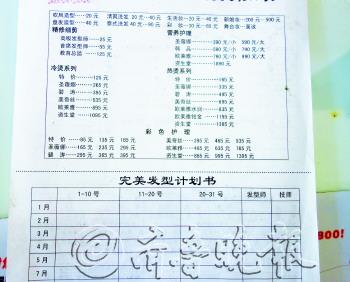 吹风造型----20元 清洗洗发 20元--40元 生活妆--20元--40元 新娘妆--200元--500元
盘发造型----40元 泰式洗发 40元--90元 彩妆--20元--60元 舞台妆--面谈
精修细剪
高级发型师-----25元
首席发型师-----55元
教育总监-----125元
营养护理
圣薇娜------390元/小 590元/大
韩品------590元/小 790元/大
欧莱雅------590元/小 790元/大
资生堂------1095元
冷烫系列
特价-----125元
圣薇娜-----265元
碧涛-----365元
美奇丝-----535元
欧莱雅-----695元
资生堂-----1095元
热烫系列
特价-----165元
圣薇娜-----335元
碧涛-----465元
美奇丝-----695元
欧莱雅水润-----635元
欧莱雅铂金-----1195元
资生堂-----1395元
彩色护理
特价-----85元 135元 185元
圣薇娜----165元 235元 265元
碧涛----235元 365元 395元
美奇丝----295元 465元 535元
欧莱雅----465元 635元 765元
资生堂----865元 995元 1395元
完美发型计划书
1-10号 11-20号 20-31号 发型师 技师
1月
2月
3月
4月
5月
6月
7月
BOO!